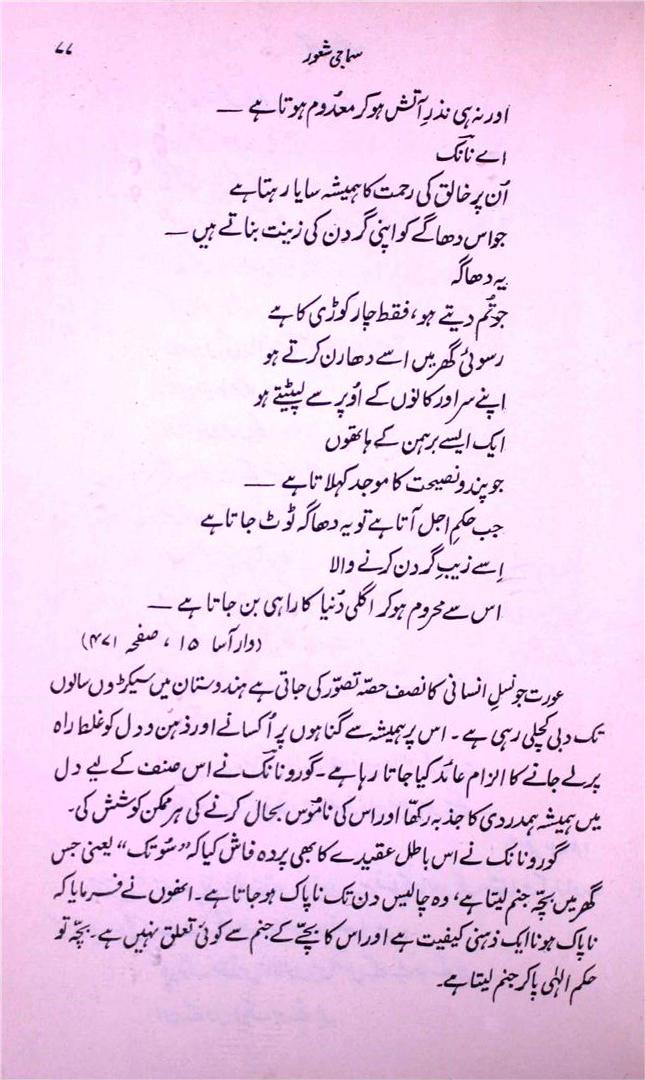 سماجی شعور ۷۷
اور نہ ہی نذرِ آتش ہو کر معدُوم ہوتا ہے —
اے نانک
اُن پر خالق کی رحمت کا ہمیشہ سایا رہتا ہے
جو اس دھاگے کو اپنی گردن کی زینت بناتے ہیں —
یہ دھاگہ
جو تُم دیتے ہو، فقط چار کوڑی کا ہے
رسوئی گھر میں اسے دھارن کرتے ہو
اپنے سر اور کانوں کے اُوپر سے لپیٹتے ہو
ایک ایسے برہمن کے ہاتھوں
جو پند و نصیحت کا موجد کہلاتا ہے —
جب حکمِ اجل آتا ہے تو یہ دھاگہ ٹوٹ جاتا ہے
اِسے زیبِ گردن کرنے والا
اس سے محروم ہو کر اگلی دُنیا کا راہی بن جاتا ہے —
(وار آسا ۱۵ ، صفحہ ۴۷۱)
عورت جو نسلِ انسانی کا نصف حصّہ تصوّر کی جاتی ہے ہندوستان میں سیکڑوں سالوں
تک دبی کچلی رہی ہے۔ اس پر ہمیشہ سے گناہوں پر اُکسانے اور ذہن و دل کو غلط راہ
پر لے جانے کا الزام عائد کیا جاتا رہا ہے۔ گورو نانک نے اس صنف کے لیے دل
میں ہمیشہ ہمدردی کا جذبہ رکھّا اور اس کی نامُوس بحال کرنے کی ہر ممکن کوشش کی۔
گورو نانک نے اس باطل عقیدے کا بھی پردہ فاش کیا کہ ”سُوتک“ یعنی جس
گھر میں بچّہ جنم لیتا ہے، وہ چالیس دن تک ناپاک ہو جاتا ہے۔ انھوں نے فرمایا کہ
ناپاک ہونا ایک ذہنی کیفیت ہے اور اس کا بچّے کے جنم سے کوئی تعلق نہیں ہے۔ بچّہ تو
حکم الٰہی پا کر جنم لیتا ہے۔